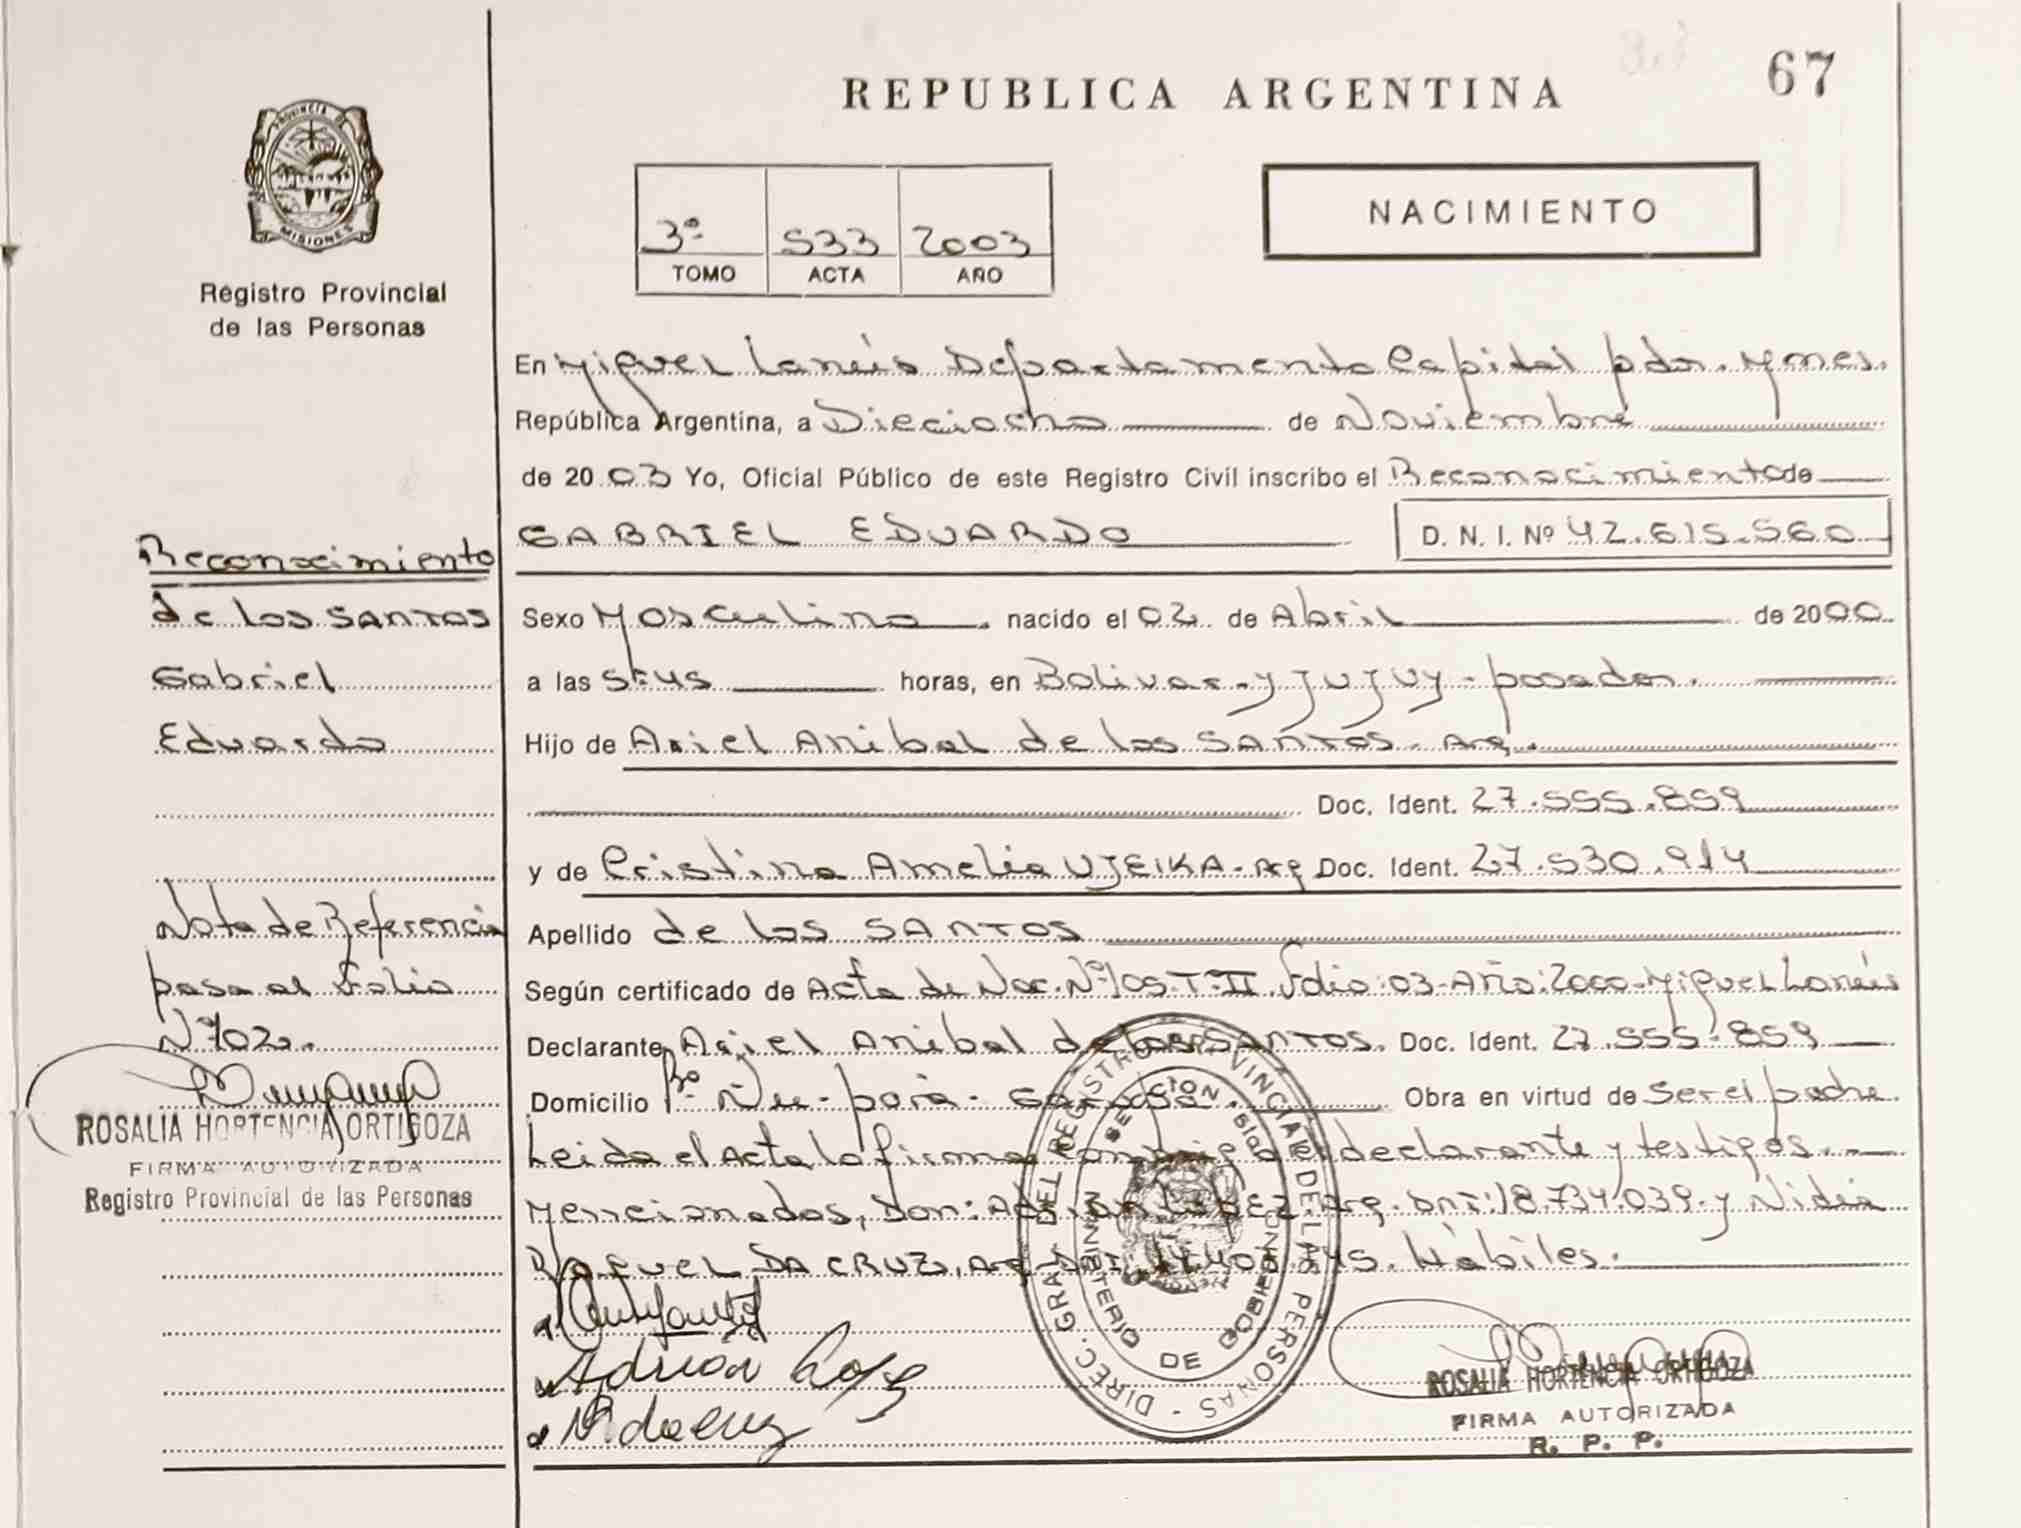 67
REPUBLICA ARGENTINA
PROVINCIA DE
MISIONES
Registro Provincial
de las Personas
3º 533 2003
TOMO ACTA AÑO
NACIMIENTO
En Miguel Lanús Departamento Capital pdas. Mnes.
República Argentina, a Dieciocho de Noviembre
de 2003 Yo, Oficial Público de este Registro Civil inscribo el Reconocimiento de
GABRIEL EDUARDO D. N. I. Nº 42.615.560
Sexo Masculino nacido el 02 de Abril de 2000
a las 5:45 horas, en Bolivar y Jujuy - posadas.
Hijo de Ariel Anibal de los SANTOS. Arg.
Doc. Ident. 27.555.859
y de Cristina Amelia UJEIKA - Arg Doc. Ident. 27.530.914
Apellido de los SANTOS
Según certificado de Acta de Nac. Nº 105-T-II. Folio: 03-Año: 2000-Miguel Lanús
Declarante Ariel Anibal de los SANTOS. Doc. Ident. 27.555.859
Domicilio Bº Ñu-porá - Garupá. Obra en virtud de Ser el padre.
Leida el Acta la firma conmigo el declarante y testigos.
Mencionados, Don: Adrian LOPEZ. Arg. DNI: 18.734.039 y Nidia
Raquel DA CRUZ, Arg. DNI: Hábiles.
Adrián
Reconocimiento
de los SANTOS
Gabriel
Eduardo
Nota de Referencia
pasa al Folio
Nº 102.
ROSALIA HORTENCIA ORTIGOZA
FIRMA AUTORIZADA
Registro Provincial de las Personas
DIREC. GRAL. DEL REGISTRO PROVINCIAL DE LAS PERSONAS
MINISTERIO DE GOBIERNO
ROSALIA HORTENCIA ORTIGOZA
FIRMA AUTORIZADA
R. P. P.